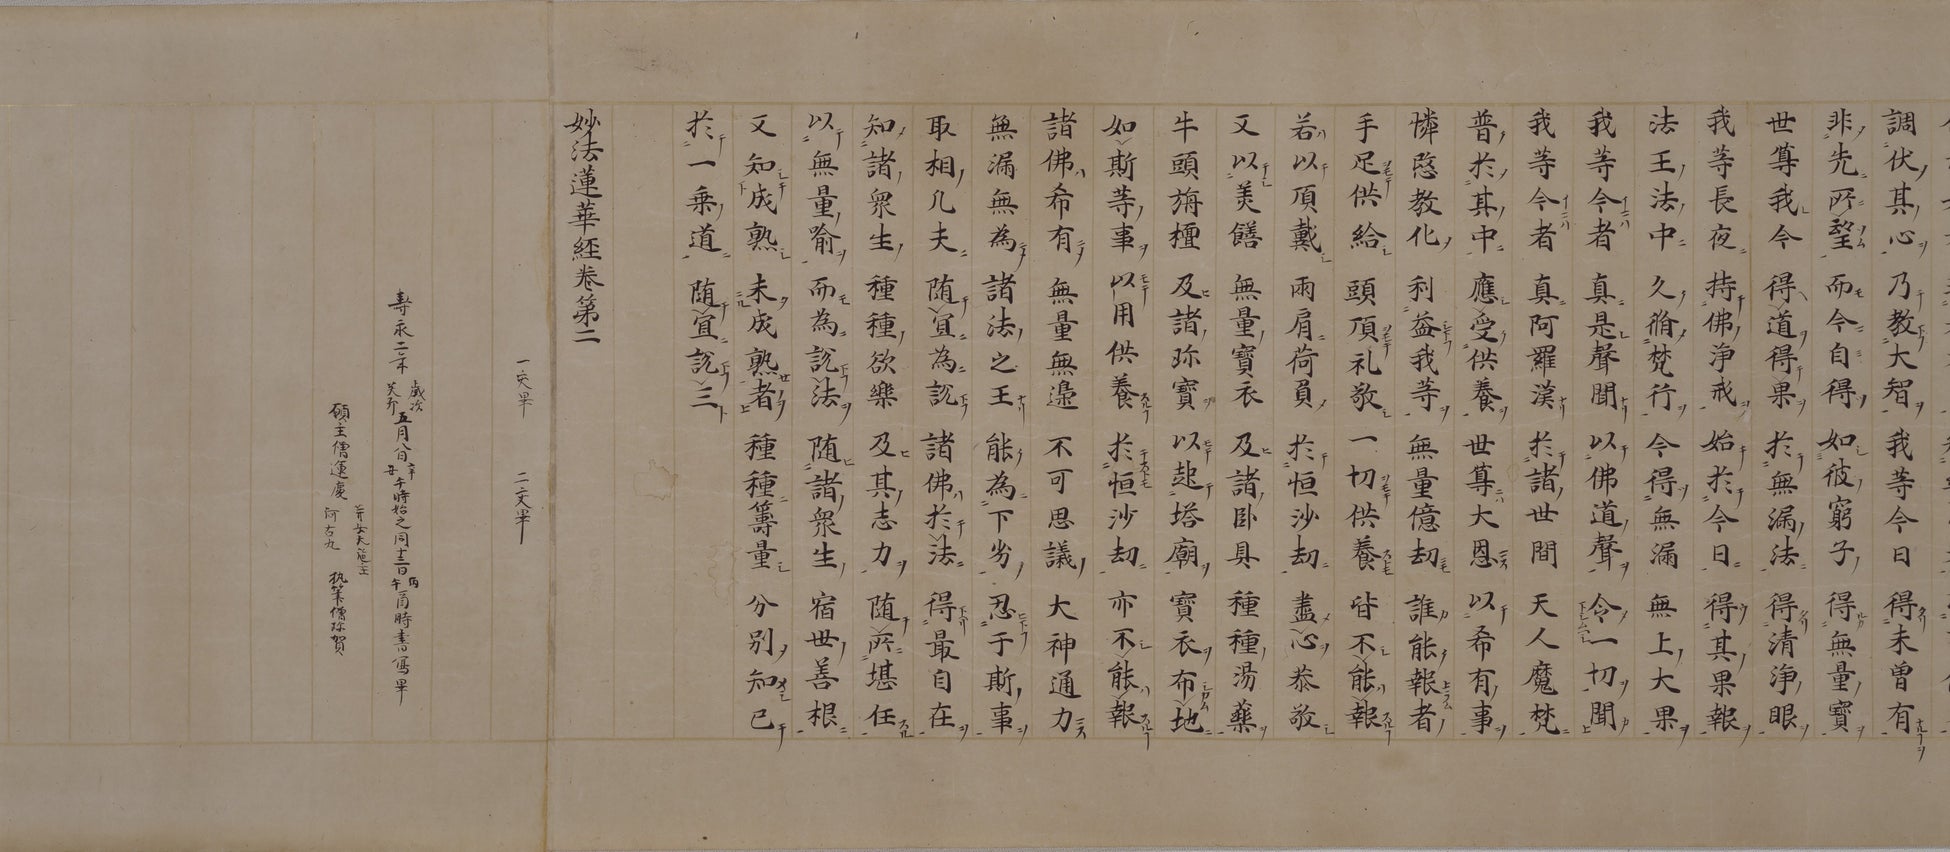 調伏其心 乃教大智 我等今日 得未曽有
非先所望 而今自得 如彼窮子 得無量寶
世尊我今 得道得果 於無漏法 得清浄眼
我等長夜 持佛浄戒 始於今日 得其果報
法王法中 久脩梵行 今得無漏 無上大果
我等今者 真是聲聞 以佛道聲 令一切聞
我等今者 真阿羅漢 於諸世間 天人魔梵
普於其中 應受供養 世尊大恩 以希有事
憐愍教化 利益我等 無量億劫 誰能報者
手足供給 頭頂礼敬 一切供養 皆不能報
若以頂戴 兩肩荷負 於恒沙劫 盡心恭敬
又以美饍 無量寶衣 及諸卧具 種種湯藥
牛頭旃檀 及諸珎寶 以起塔廟 寶衣布地
如斯等事 以用供養 於恒沙劫 亦不能報
諸佛希有 無量無邊 不可思議 大神通力
無漏無為 諸法之王 能為下劣 忍于斯事
取相凡夫 随宜為說 諸佛於法 得最自在
知諸衆生 種種欲樂 及其志力 随所堪任
以無量喻 而為說法 随諸衆生 宿世善根
又知成熟 未成熟者 種種籌量 分別知已
於一乗道 随宜說三
妙法蓮華経巻第二
一交畢 二交畢
壽永二年歳次癸卯五月八日辛丑午時始之同十三日丙午酉時書寫畢
願主僧運慶 女大施主 阿古丸 執筆僧珎賀